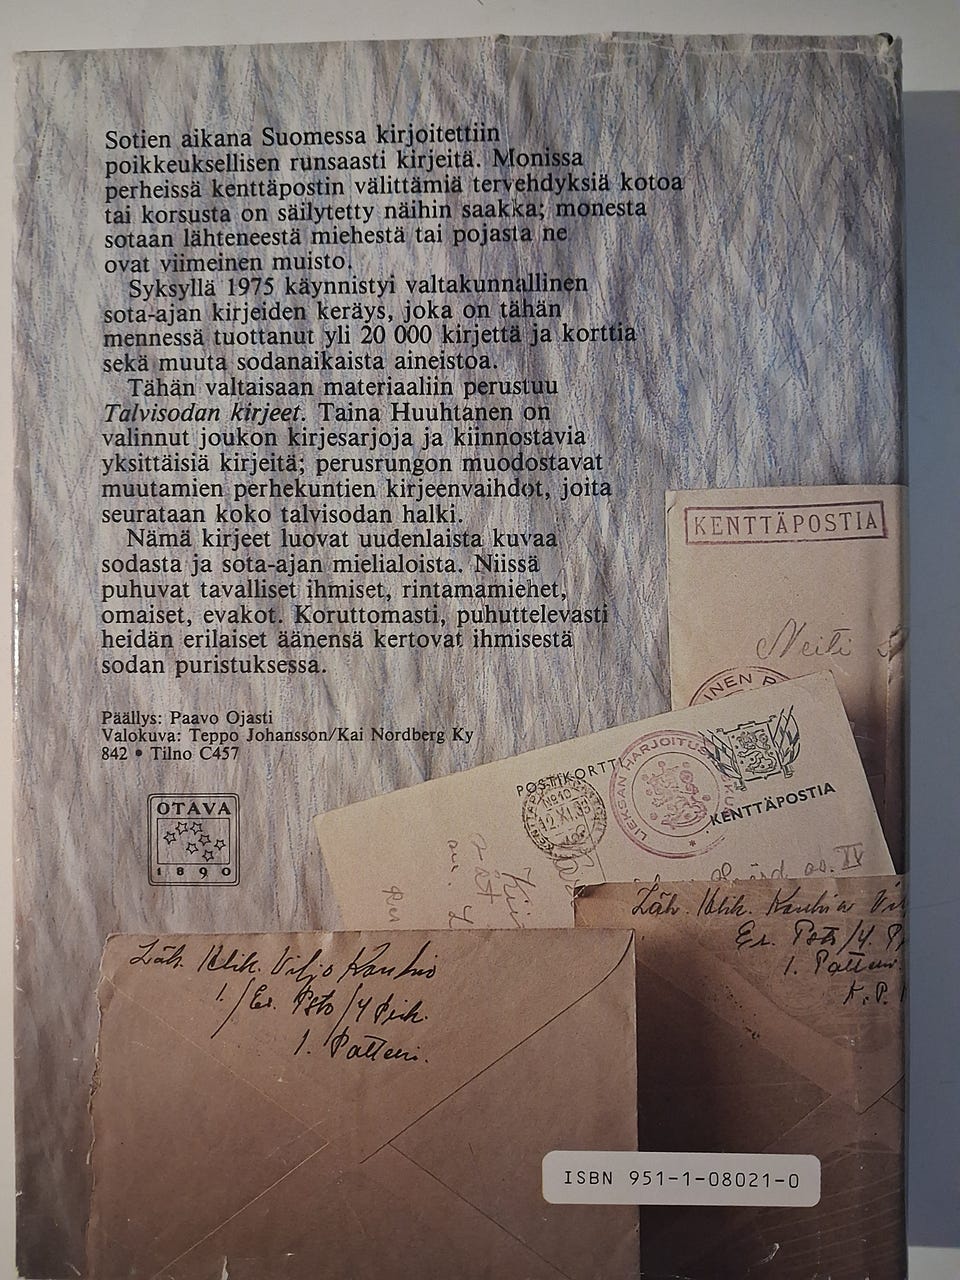 Sotien aikana Suomessa kirjoitettiin
poikkeuksellisen runsaasti kirjeitä. Monissa
perheissä kenttäpostin välittämiä tervehdyksiä kotoa
tai korsusta on säilytetty näihin saakka; monesta
sotaan lähteneestä miehestä tai pojasta ne
ovat viimeinen muisto.
Syksyllä 1975 käynnistyi valtakunnallinen
sota-ajan kirjeiden keräys, joka on tähän
mennessä tuottanut yli 20 000 kirjettä ja korttia
sekä muuta sodanaikaista aineistoa.
Tähän valtaisaan materiaaliin perustuu
Talvisodan kirjeet. Taina Huuhtanen on
valinnut joukon kirjesarjoja ja kiinnostavia
yksittäisiä kirjeitä; perusrungon muodostavat
muutamien perhekuntien kirjeenvaihdot, joita
seurataan koko talvisodan halki.
Nämä kirjeet luovat uudenlaista kuvaa
sodasta ja sota-ajan mielialoista. Niissä
puhuvat tavalliset ihmiset, rintamamiehet,
omaiset, evakot. Koruttomasti, puhuttelevasti
heidän erilaiset äänensä kertovat ihmisestä
sodan puristuksessa.
Päällys: Paavo Ojasti
Valokuva: Teppo Johansson/Kai Nordberg Ky
842 • Tilno C457
OTAVA
1890
KENTTÄPOSTIA
Neiti
INEN P
POSTIKORTT
LIEKSAN HARJOITUS
KENTTÄPOSTIA
IV
Läh.
1. Patteri.
K.P.
Läh. Viljo
1. Patteri.
ISBN 951-1-08021-0